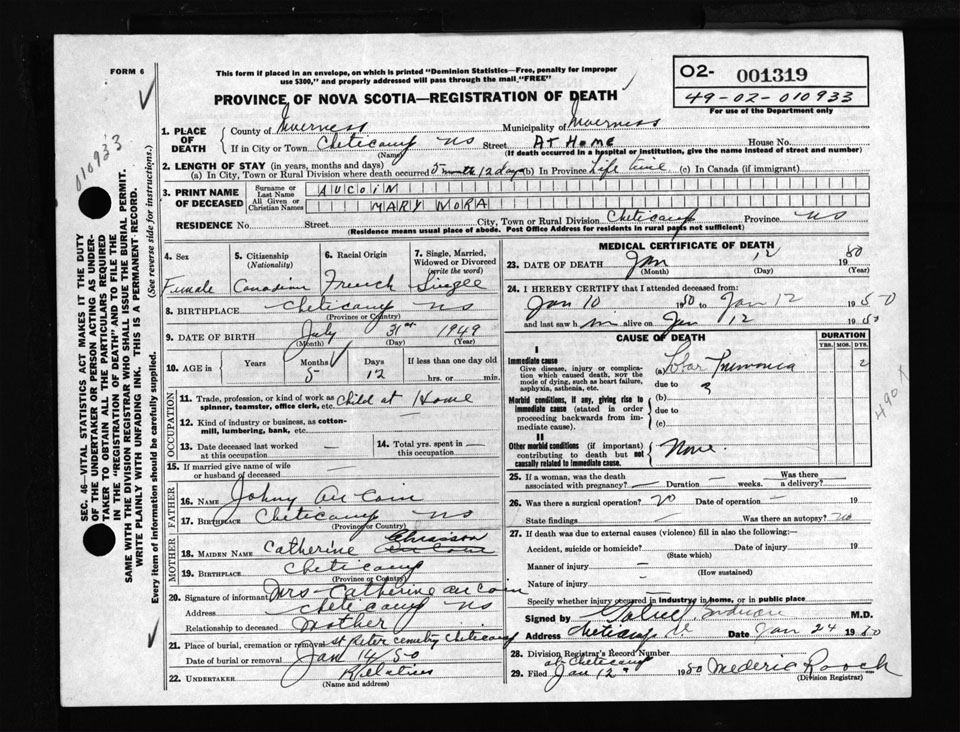 FORM 6
This form if placed in an envelope, on which is printed "Dominion Statistics—Free, penalty for improper
use $300," and properly addressed will pass through the mail, "FREE"
PROVINCE OF NOVA SCOTIA—REGISTRATION OF DEATH
02- 001319
49-02-010933
For use of the Department only
010933
SEC. 46—VITAL STATISTICS ACT MAKES IT THE DUTY
OF THE UNDERTAKER OR PERSON ACTING AS UNDER-
TAKER TO OBTAIN ALL THE PARTICULARS REQUIRED
IN THE "REGISTRATION OF DEATH" AND TO FILE THE
SAME WITH THE DIVISION REGISTRAR WHO SHALL ISSUE THE BURIAL PERMIT.
WRITE PLAINLY WITH UNFADING INK. THIS IS A PERMANENT RECORD.
Every item of information should be carefully supplied. (See reverse side for instructions.)
1. PLACE OF DEATH
County of Inverness Municipality of Inverness
If in City or Town Cheticamp NS Street At Home House No.
(Name) (If death occurred in a hospital or institution, give the name instead of street and number)
2. LENGTH OF STAY (in years, months and days)
(a) In City, Town or Rural Division where death occurred 5 month 12 days (b) In Province Life time (c) In Canada (if immigrant)
3. PRINT NAME OF DECEASED
Surname or Last Name AUCOIN
All Given or Christian Names MARY NORA
RESIDENCE No. Street City, Town or Rural Division Cheticamp Province NS
(Residence means usual place of abode. Post Office Address for residents in rural parts not sufficient)
4. Sex Female
5. Citizenship (Nationality) Canadian
6. Racial Origin French
7. Single, Married, Widowed or Divorced (write the word) Single
8. BIRTHPLACE Cheticamp NS
(Province or Country)
9. DATE OF BIRTH July 31st 1949
(Month) (Day) (Year)
10. AGE in Years Months 5 Days 12 If less than one day old hrs. or min.
OCCUPATION
11. Trade, profession, or kind of work as spinner, teamster, office clerk, etc. Child at Home
12. Kind of industry or business, as cotton-mill, lumbering, bank, etc. —
13. Date deceased last worked at this occupation —
14. Total yrs. spent in this occupation —
15. If married give name of wife or husband of deceased —
FATHER
16. NAME Johny Au Coin
17. BIRTHPLACE Cheticamp NS
(Province or Country)
MOTHER
18. MAIDEN NAME Catherine Chiasson
19. BIRTHPLACE Cheticamp
(Province or Country)
20. Signature of informant Mrs Catherine au Coin
Address Cheticamp NS
Relationship to deceased Mother
21. Place of burial, cremation or removal St Peter Cemetry Cheticamp
Date of burial or removal Jan 14 50
22. UNDERTAKER Relatives
(Name and address)
MEDICAL CERTIFICATE OF DEATH
23. DATE OF DEATH Jan 12 1950
(Month) (Day) (Year)
24. I HEREBY CERTIFY that I attended deceased from:
Jan 10 1950 to Jan 12 1950
and last saw h alive on Jan 12 1950
CAUSE OF DEATH DURATION
YRS. MOS. DYS.
I
Immediate cause
Give disease, injury or complication which caused death, NOT the mode of dying, such as heart failure, asphyxia, asthenia, etc.
(a) Lobar Pneumonia 2
due to
Morbid conditions, if any, giving rise to immediate cause (stated in order proceeding backwards from immediate cause).
(b)
due to
(c)
490
II
Other morbid conditions (if important) contributing to death but not causally related to immediate cause.
None.
25. If a woman, was the death associated with pregnancy? — Duration — weeks. Was there a delivery? —
26. Was there a surgical operation? No Date of operation — 19
State findings — Was there an autopsy? No
27. If death was due to external causes (violence) fill in also the following:—
Accident, suicide or homicide? Date of injury 19
(State which)
Manner of injury —
(How sustained)
Nature of injury —
Specify whether injury occurred in industry, in home, or in public place
Signed by M.D.
Address Cheticamp Date Jan 24 1950
28. Division Registrar's Record Number
29. Filed Jan 12 1950 Mederic Roach
at Cheticamp
(Division Registrar)